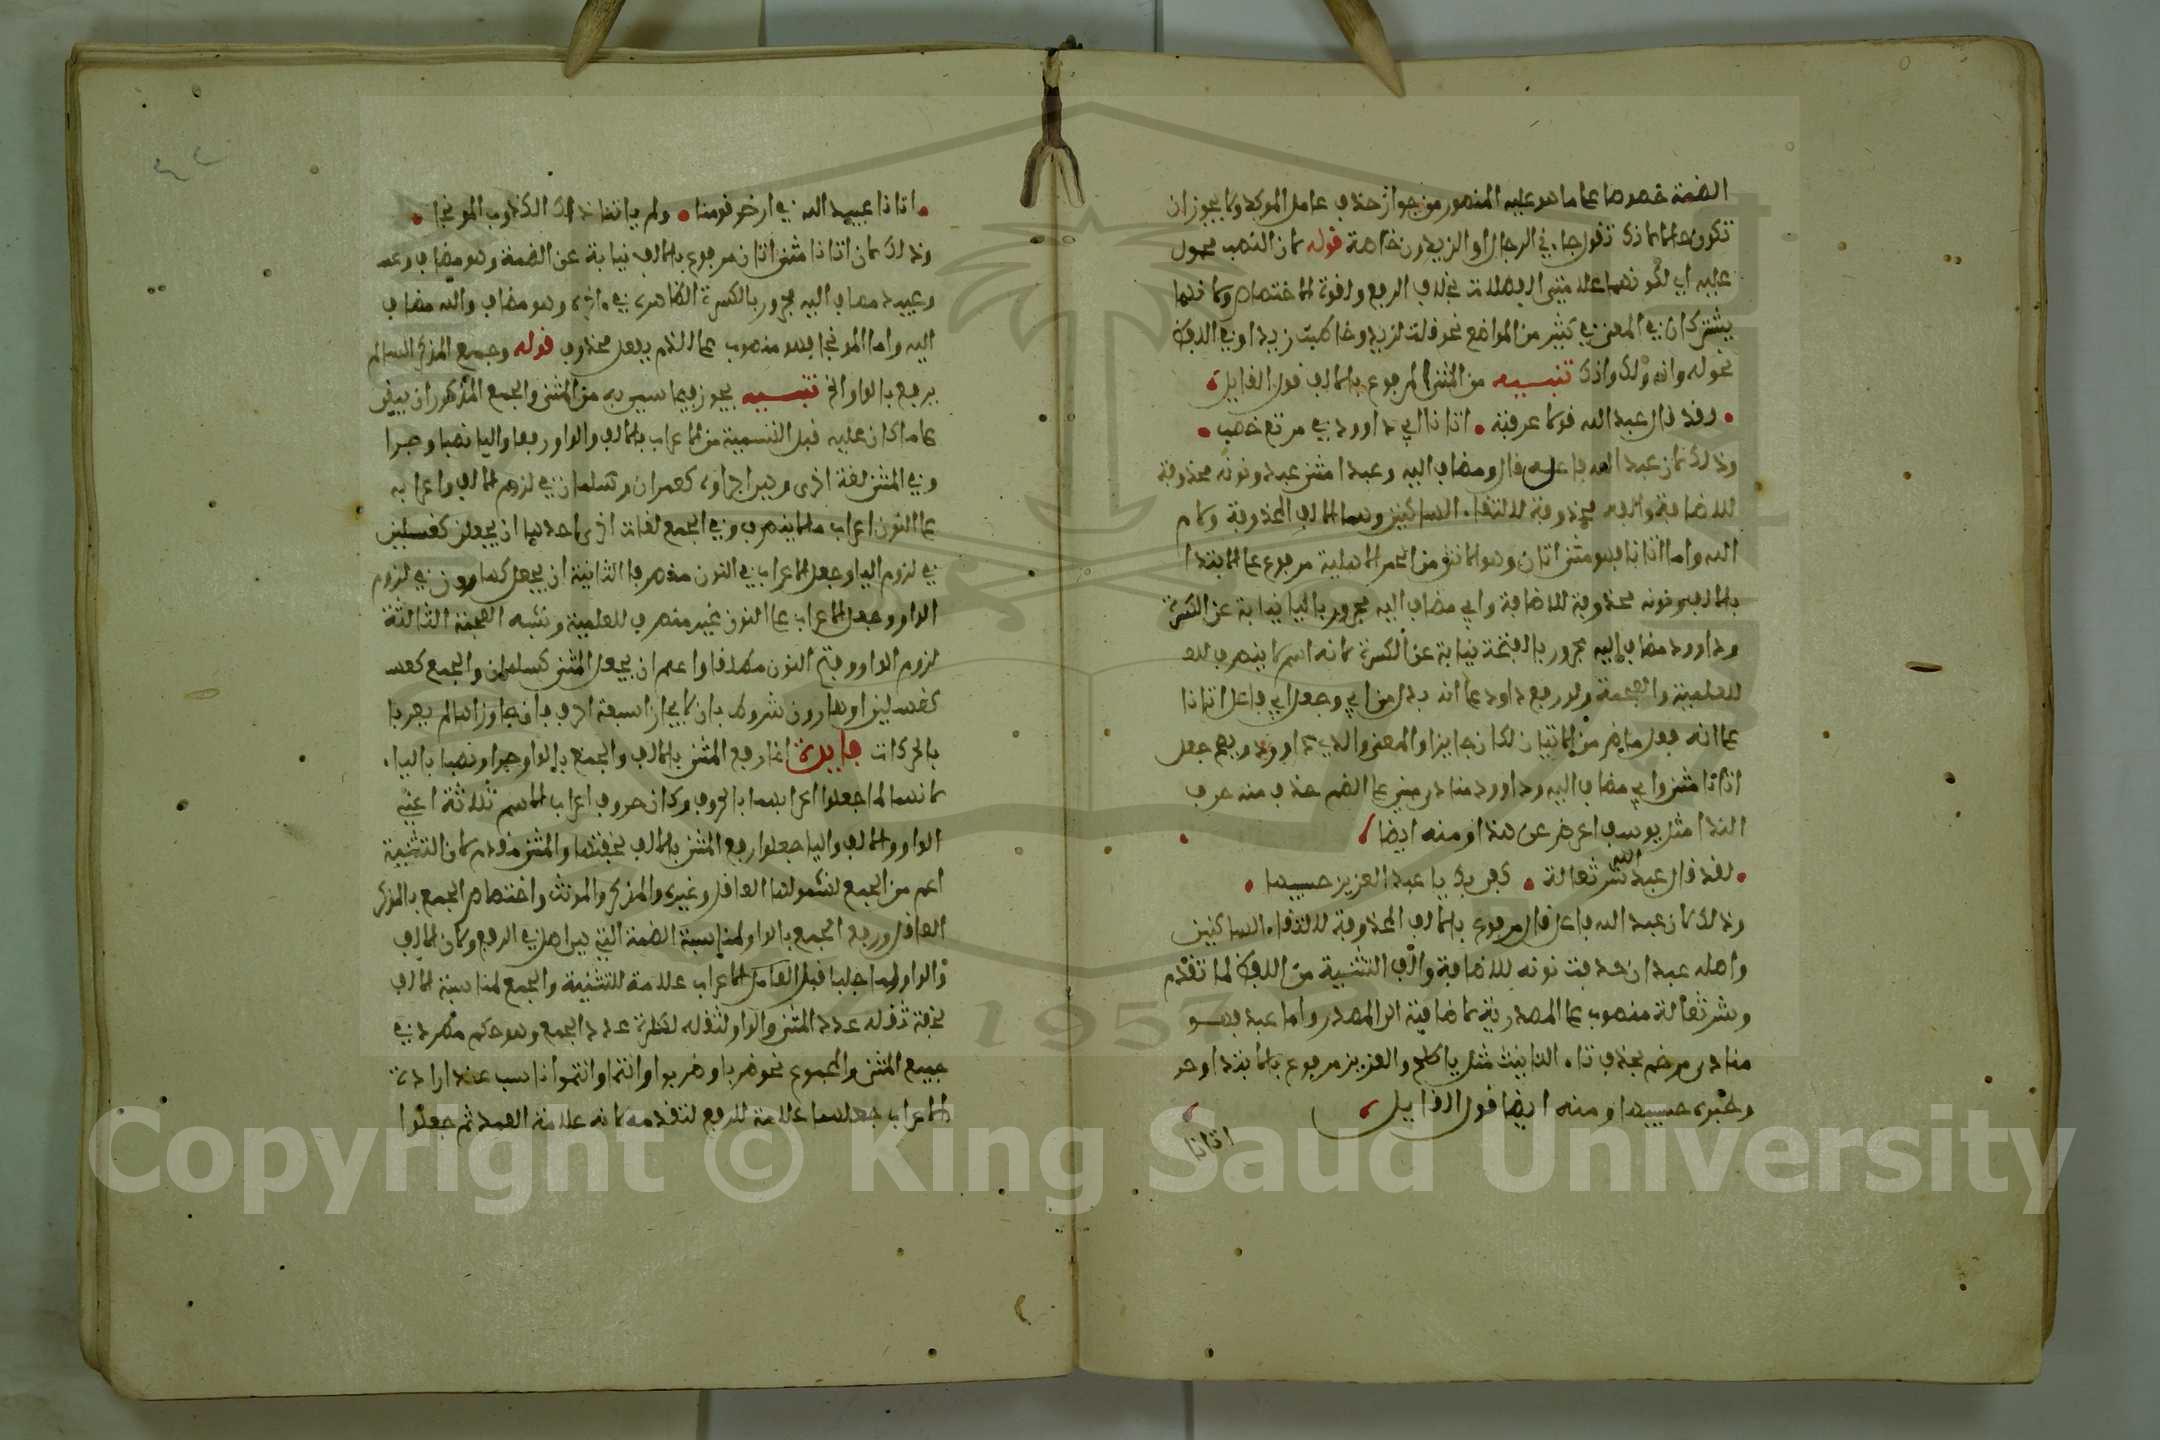 الضمة خصوصا على ما هو عليه المنصور من جواز حذف عامل الموكد ولا يجوز ان
تكون حالا لما ذكر تقول جاء في الرجال او الزيدون خاصة قوله لان النصب محمول
عليه اي لكونهما علامتي الفضلات بخلاف الرفع ولقوة الاختصاص ولانهما
يشتركان في المعنى في كثير من المواضع نحو قلت لزيد وخاطبت زيدا وفي اللفظ
نحو له وانه ولك واذك تنبيه من المثنى المرفوع بالالف قول القايل
وقد قال عبد الله قولا عرفته اتانا ابي داوود في مرتع خصب
وذلك لان عبد الله فاعل قال ومضاف اليه وعبدا مثنى عبد ونونه محذوفة
للاضافة والفه محذوفة لالتقاء الساكنين وهما الالف المحذوفة ولام
الله واما اتانا فهو مثنى اتان وهو الانثى من الحمر الاهلية مرفوع على الابتدا
بالالف ونونه محذوفة للاضافة وابي مضاف اليه مجرور باليا نيابة عن الكسرة
وداوود مضاف اليه مجرور بالفتحة نيابة عن الكسرة لانه اسم لا ينصرف للعـ
للعلمية والعجمة ولو رفع داود على انه بدل من ابي وجعل ابي فاعل اتانا
على انه فعل ماض من الاتيان لكان جايزا والمعنى والدي داوود ويصح جعل
اتانا مثنى وابي مضاف اليه وداوود منادى مبني على الضم حذف منه حرف
الندا مثل يوسف اعرض عن هذا ومنه ايضا
لقد قال عبد الله شر مقالة كفى بك يا عبد العزيز حسيبها
وذلك لان عبد الله فاعل قال مرفوع بالالف المحذوفة لالتقاء الساكنين
واصله عبدان حذفت نونه للاضافة والف التثنية من اللفظ لما تقدم
وشر مقالة منصوب على المصدرية لاضافته الى المصدر واما عبد فهـــو
منادى مرخم بحذف تاء التانيث مثل يا طلح والعزيز مرفوع بالابتدا وحر
وخبره حسيبها ومنه ايضا قول القايل
اتانا
اتانا عبيد الله في ارض قومنا ولم ياتنا ذلك الكذوب الموغجا
وذلك لان اتانا مثنى اتان مرفوع بالالف نيابة عن الضمة وهو مضاف وعبـ
وعبيد مضاف اليه مجرور بالكسرة الظاهرة في اخره وهو مضاف والله مضاف
اليه واما الموغجا فهو منصوب على الذم بفعل محذوف قوله وجمع المذكر السالم
يرفع بالواو الخ تنبيه يجوز فيما سمي به من المثنى والجمع المذكور ان يبقى
على ما كان عليه قبل التسمية من الاعراب بالالف والواو رفعا واليا نصبا وجرا
وفي المثنى لغة اخرى وهي اجراوه كعمران وسلمان في لزوم الالف واعرابه
على النون اعراب ما لا ينصرف وفي الجمع لغات اخرى احديها ان يجعل كغسلين
في لزوم اليا وجعل الاعراب في النون مصرفا الثانية ان يجعل كهارون في لزوم
الواو وجعل الاعراب على النون غير منصرف للعلمية وشبه العجمة الثالثة
لزوم الواو وفتح النون مطلقا واعلم ان يجعل المثنى كسلمان والجمع كغسـ
كغسلين او هارون شروط بان لا يجاوزا سبعة احرف فان جاوزاها لم يعربا
بالحركات فايدة انما رفع المثنى بالالف والجمع بالواو وجرا ونصبا بالياء
لانهما لما جعلوا اعرابهما بالحروف وكان حروف اعراب الاسم ثلاثة اعني
الواو والالف واليا جعلوا رفع المثنى بالالف لخفتها والمثنى مقدم لان التثنية
اعم من الجمع لشمولها العاقل وغيره والمذكر والمونث واختصاص الجمع بالمذكر
العاقل ورفع الجمع بالواو لمناسبة الضمة التي هي اصل في الرفع ولان الالف
والواو لما جلبا قبل العامل الاعراب علامة للتثنية والجمع لمناسبة الالف
بخفة ثقله عدد المثنى والواو لثقله لكثرة عدد الجمع وهو حكم مطرد في
جميع المثنى والجموع نحو ضربا وضربوا وانتما وانتموا ناسب عند ارادة
الاعراب جعلهما علامة للرفع لتقدمه لانه علامة العمد ثم جعلوا
1957
Copyright © King Saud University